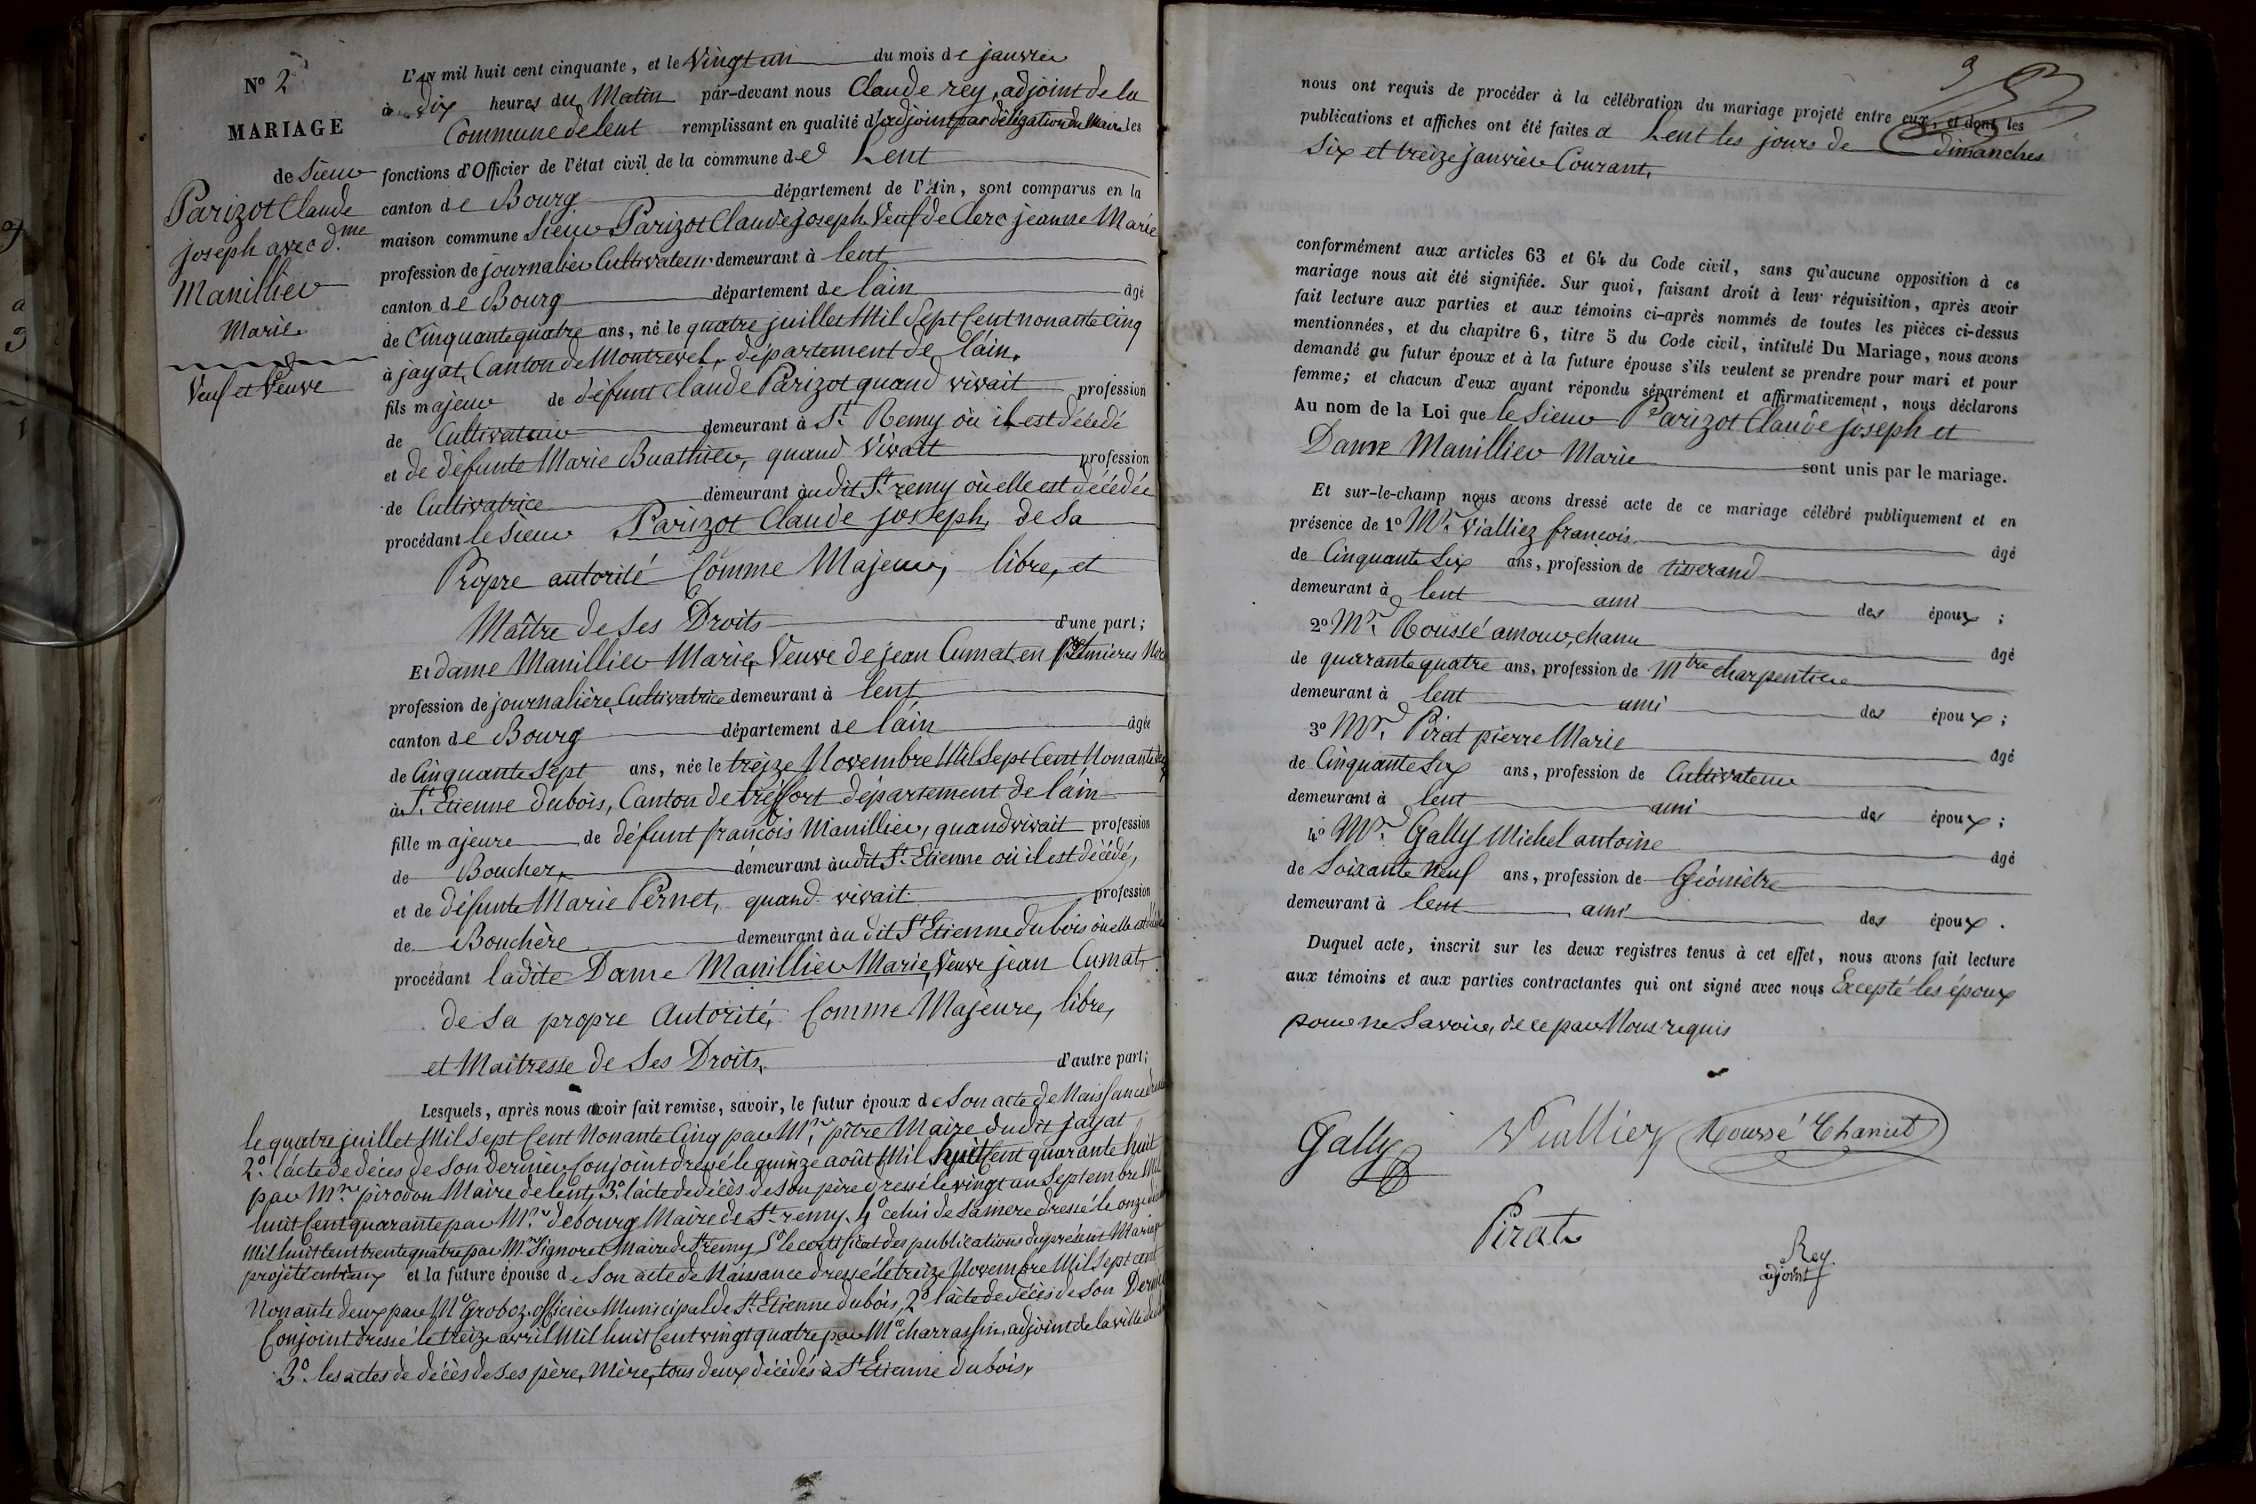 N° 2
MARIAGE
de Sieur
Parizot Claude
joseph avec d.me
Manillier
Marie
Veuf et Veuve
L'AN mil huit cent cinquante, et le Vingt un du mois de janvier
à dix heures du Matin par-devant nous Claude rey, adjoint de la
Commune de lent remplissant en qualité d'adjoint par délégation du Maire les
fonctions d'Officier de l'état civil de la commune de Lent
canton de Bourg département de l'Ain, sont comparus en la
maison commune Sieur Parizot Claude joseph Veuf de Clerc jeanne Marie
profession de journalier Cultivateur demeurant à lent
canton de Bourg département de l'ain âgé
de Cinquante quatre ans, né le quatre juillet Mil Sept Cent nonante Cinq
à jayat, Canton de Montrevel, département de l'ain.
fils majeur de défunt Claude Parizot quand vivait profession
de Cultivateur demeurant à St Remy où il est décédé
et de défunte Marie Buathier, quand Vivait profession
de Cultivatrice demeurant audit St remy où elle est décédée
procédant le Sieur Parizot Claude joseph, de Sa
Propre autorité Comme Majeur, libre, et
Maître de Ses Droits d'une part;
Et dame Manillier Marie, Veuve de jean Cumat en Premières
profession de journalière Cultivatrice demeurant à lent
canton de Bourg département de l'ain âgée
de Cinquante Sept ans, née le treize Novembre Mil Sept Cent Nonante deux
à St Etienne dubois, Canton de tréffort département de l'ain
fille majeure de défunt françois Manillier, quand vivait profession
de Boucher, demeurant audit St Etienne où il est décédé,
et de défunte Marie Pernet, quand vivait profession
de Bouchère demeurant au dit St Etienne dubois où elle est
procédant ladite Dame Manillier Marie, Veuve jean Cumat,
de Sa propre Autorité, Comme Majeure, libre,
et Maîtresse de Ses Droits, d'autre part;
Lesquels, après nous avoir fait remise, savoir, le futur époux de Son acte de Naissance
le quatre juillet Mil Sept Cent Nonante Cinq par Mr pitre Maire dudit jayat
2° l'acte de déces de Son dernier Conjoint dressé le quinze août Mil huit Cent quarante huit
par Mr pirodon Maire de lent, 3° l'acte de décès de Son père dressé le vingt un Septembre Mil
huit Cent quarante par Mr debourg Maire de St remy. 4° celui de Sa mère dressé le onze
Mil huit Cent trente quatre par Mr Signoret Maire de St remy 5° le certificat des publications du présent Mariage
projété entr'eux et la future épouse de Son acte de Naissance dressé le treize Novembre Mil Sept cent
Nonante deux par Mr Groboz, officier Municipal de St Etienne dubois, 2° l'acte de décès de Son Dernier
Conjoint dressé le treize avril Mil huit Cent vingt quatre par Mr charrassin, adjoint de la ville de
3° les actes de décès de Ses père, Mère, tous deux décédés à St Etienne dubois,
nous ont requis de procéder à la célébration du mariage projeté entre eux, et dont les
publications et affiches ont été faites à Lent les jours de dimanches
Six et treize janvier Courant,
conformément aux articles 63 et 64 du Code civil, sans qu'aucune opposition à ce
mariage nous ait été signifiée. Sur quoi, faisant droit à leur réquisition, après avoir
fait lecture aux parties et aux témoins ci-après nommés de toutes les pièces ci-dessus
mentionnées, et du chapitre 6, titre 5 du Code civil, intitulé Du Mariage, nous avons
demandé au futur époux et à la future épouse s'ils veulent se prendre pour mari et pour
femme; et chacun d'eux ayant répondu séparément et affirmativement, nous déclarons
Au nom de la Loi que le Sieur Parizot Claude joseph et
Dame Manillier Marie sont unis par le mariage.
Et sur-le-champ nous avons dressé acte de ce mariage célébré publiquement et en
présence de 1° Mr Vialliez françois âgé
de Cinquante Six ans, profession de tisserand
demeurant à lent ami des époux;
2° Mr Roussé amour, chanu âgé
de quarante quatre ans, profession de Mtre charpentier
demeurant à lent ami des époux;
3° Mr Pirat pierre Marie âgé
de Cinquante Six ans, profession de Cultivateur
demeurant à lent ami des époux;
4° Mr Gally Michel antoine âgé
de Soixante Neuf ans, profession de Géomètre
demeurant à lent ami des époux.
Duquel acte, inscrit sur les deux registres tenus à cet effet, nous avons fait lecture
aux témoins et aux parties contractantes qui ont signé avec nous Excepté les époux
pour ne Savoir, de ce par Nous requis
Gally Vialliez Roussé Chanut
Pirat
Rey
adjoint